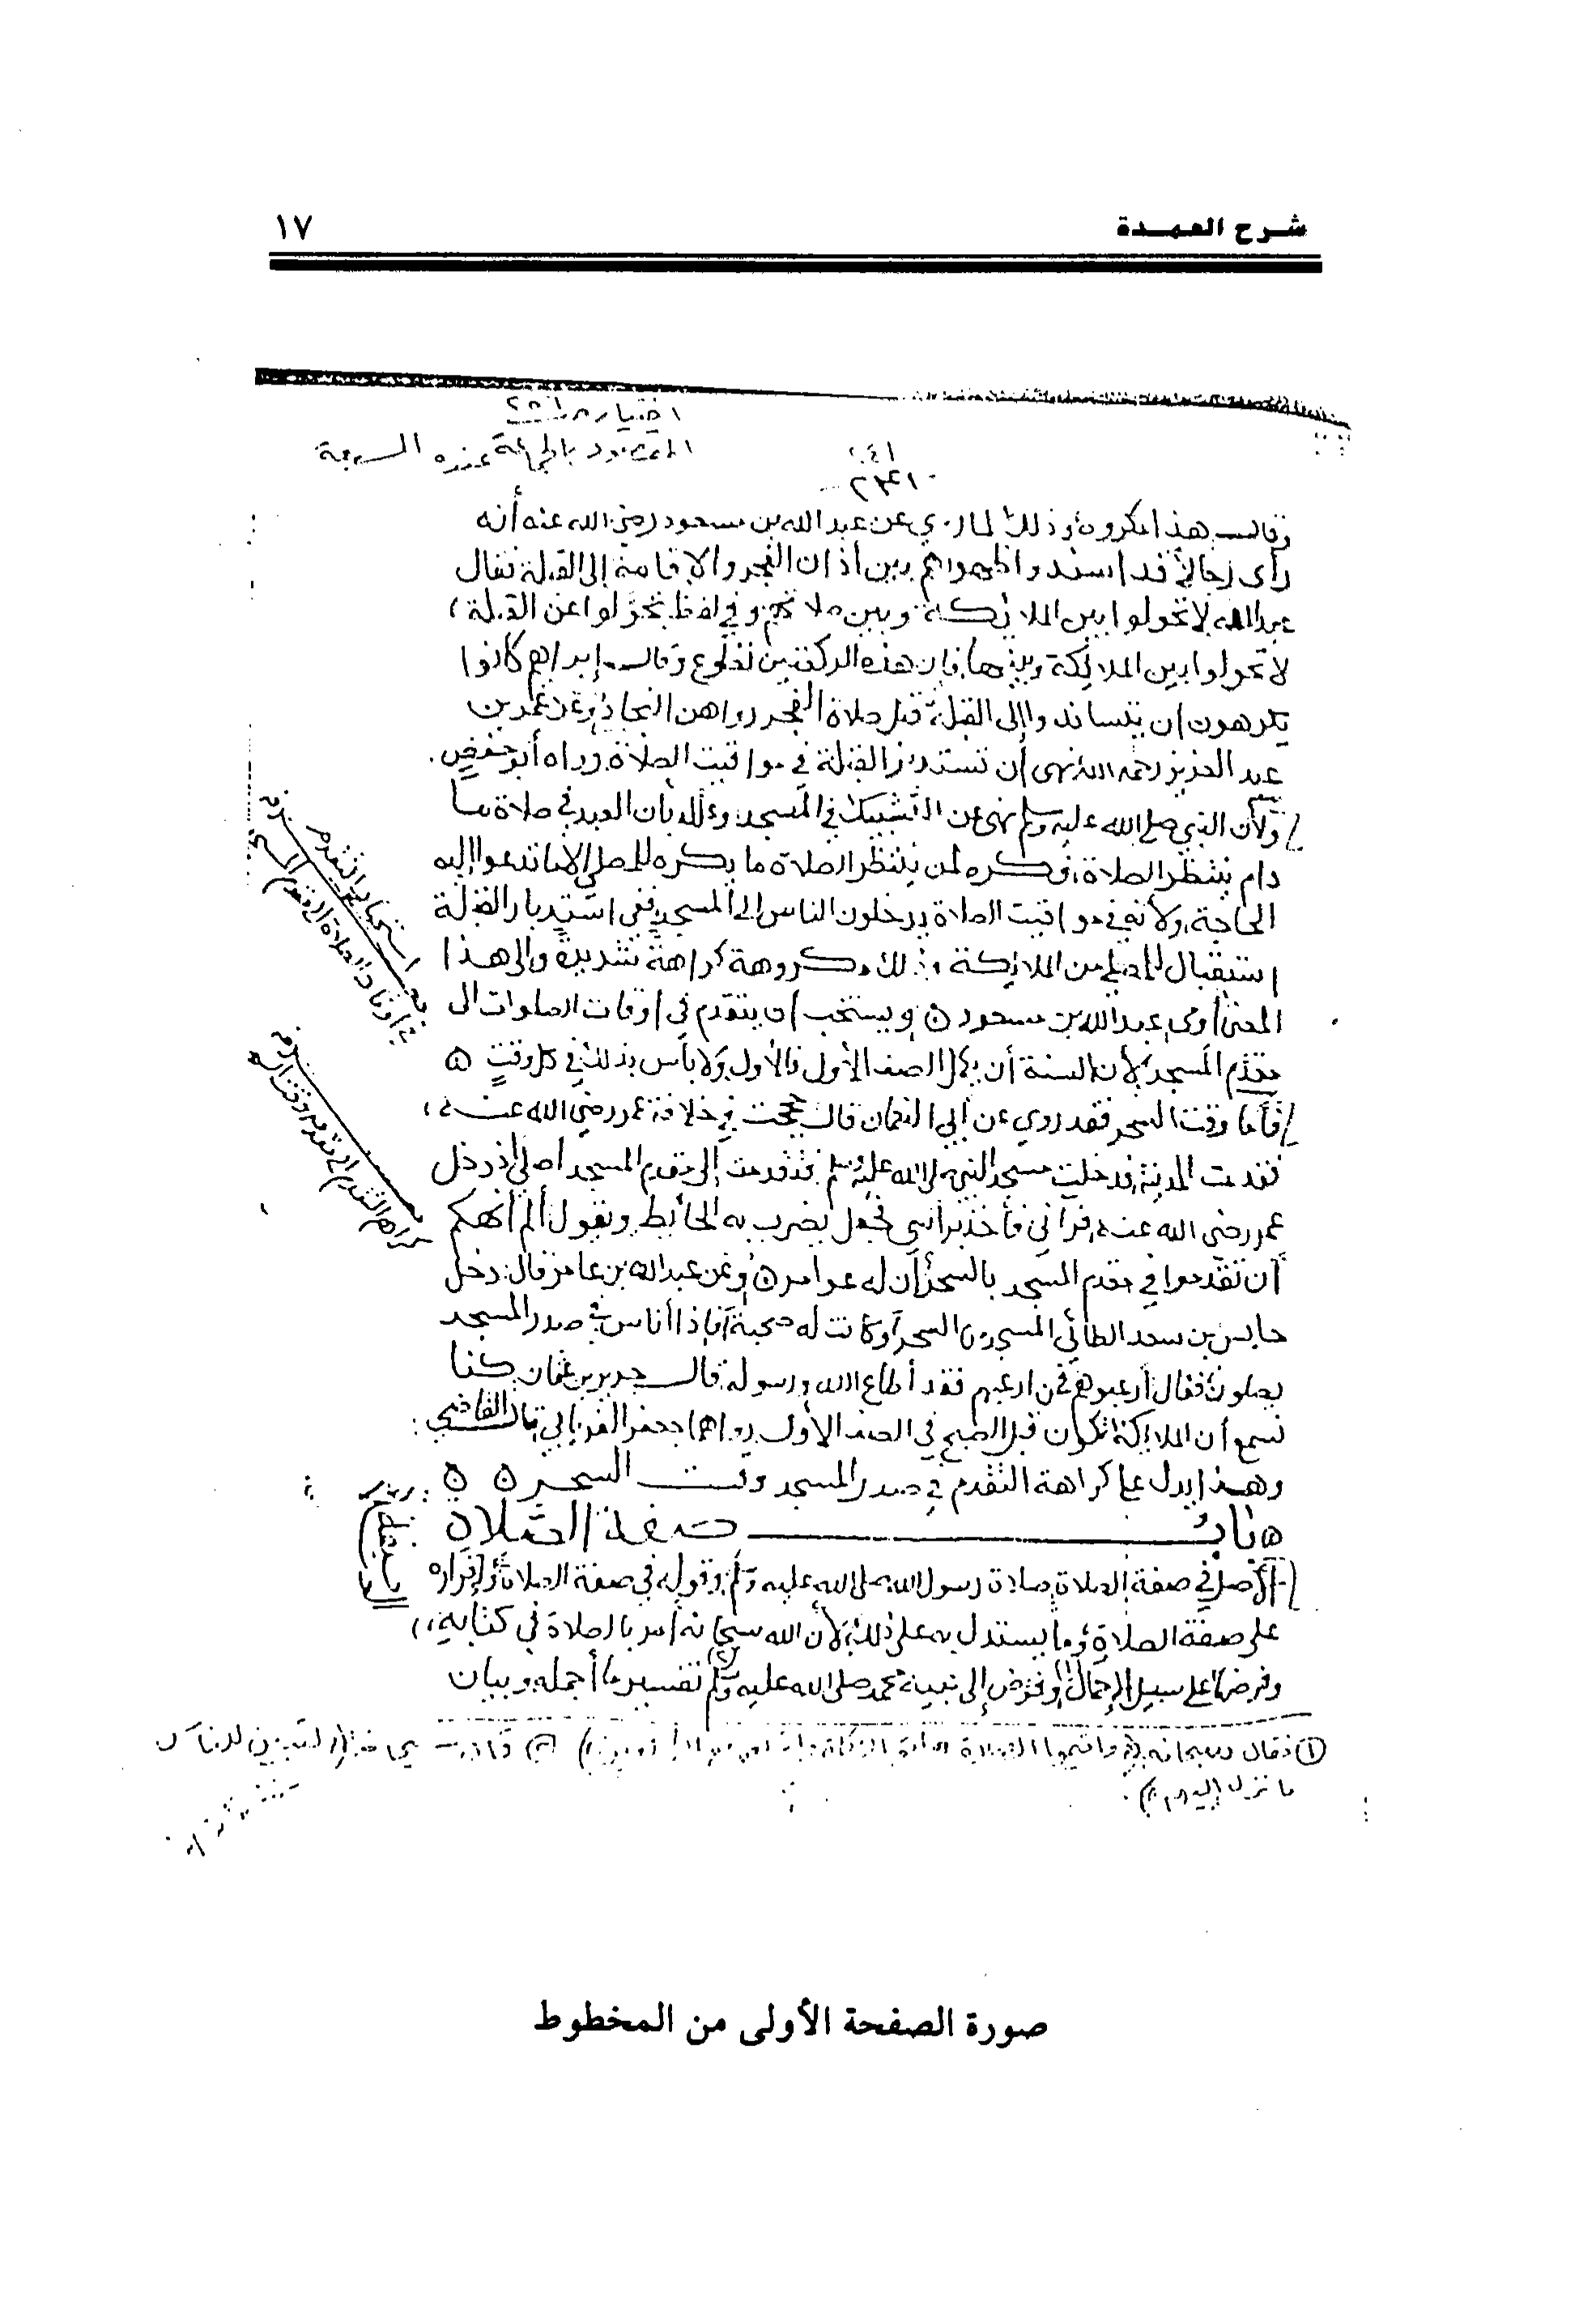 شرح العمدة
١٧
المقصود بالجماعة عنده السبعة
وقال هذا مكروه وذلك لما روي عن عبد الله بن مسعود رضي الله عنه أنه
رأى رجالاً قد اسندوا ظهورهم بين أذان الفجر والإقامة إلى القبلة فقال
عبد الله لا تحولوا بين الملائكة وبين صلاتهم وفي لفظ تحولوا عن القبلة
لا تحولوا بين الملائكة وبينها فإن هذه الركعتين تطوع وقال إبراهيم كانوا
يكرهون أن يتساندوا إلى القبلة قبل صلاة الفجر رواهن النجاد وعن عمر بن
عبد العزيز رحمه الله نهى أن تستدبر القبلة في مواقيت الصلاة رواه أبو حفص.
ولأن النبي صلى الله عليه وسلم نهى عن التشبيك في المسجد وعلله بأن العبد في صلاة ما
دام ينتظر الصلاة، فكره لمن ينتظر الصلاة ما يكره للمصلي إلا ما تدعوا إليه
الحاجة، ولأنه في مواقيت الصلاة يدخلون الناس إلى المسجد ففي استدبار القبلة
استقبال للمصلي من الملائكة وذلك مكروهة كراهة شديدة وإلى هذا
المعنى أومى عبد الله بن مسعود ٥ ويستحب أن يتقدم في أوقات الصلوات الى
مقدم المسجد لأن السنة أن يكمل الصف الأول فالأول ولا بأس بذلك في كل وقت ٥
فأما وقت السحر فقد روي عن أبي النعمان قال حججت في خلافة عمر رضي الله عنه،
فقدمت المدينة فدخلت مسجد النبي صلى الله عليه وسلم فتقدمت إلى مقدم المسجد اصلي إذ دخل
عمر رضي الله عنه، فرآني فأخذ برأسي فجعل يضرب به الحائط ويقول ألم أنهكم
أن تقدموا في مقدم المسجد بالسحر أن له عوامر ٥ وعن عبد الله بن عامر قال: دخل
حابس بن سعد الطائي المسجد من السحر وكانت له صحبة فإذا أناس في صدر المسجد
يصلون فقال أرعبوهم فمن ارعبهم فقد أطاع الله ورسوله قال حريز بن عثمان كنا
نسمع أن الملائكة تكون قبل الصبح في الصف الأول رواهما جعفر الفريابي قال القاضي:
وهذا يدل على كراهة التقدم في صدر المسجد وقت السحر ٥ ٥
باب صفة الصلاة
الأصل في صفة الصلاة صلاة رسول الله صلى الله عليه وسلم وقوله في صفة الصلاة وإقراره
على صفة الصلاة وما يستدل به على ذلك لأن الله سبحانه أمر بالصلاة في كتابه،
وفرضها على سبيل الإجمال (١) وفوض إلى نبيه محمد صلى الله عليه وسلم (٢) تفسير ما أجمله وبيان
(١) فقال سبحانه
لتبين للناس
ما نزل إليهم.
صورة الصفحة الأولى من المخطوط